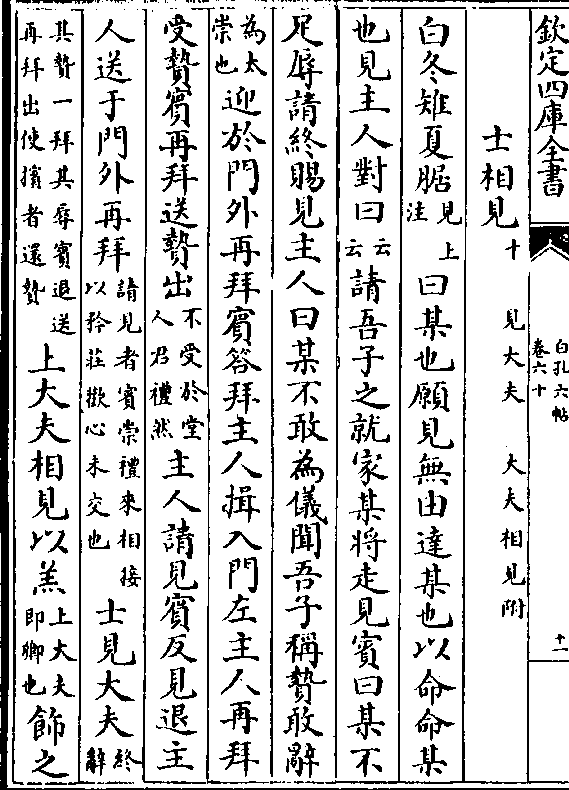 欽定四庫全書
白孔六帖
卷六十
十一
士相見十 見大夫 大夫相見附
白冬雉夏腒見上注曰某也願見無由達某也以命命某
也見主人對曰云云請吾子之就家某將走見賓曰某不
足辱請終賜見主人曰某不敢為儀聞吾子稱贄敢辭
為太崇也迎於門外再拜賓答拜主人揖入門左主人再拜
受贄賓再拜送贄出不受於堂人君禮然主人請見賓反見退主
人送于門外再拜請見者賓崇禮來相接以矜莊歡心未交也士見大夫終辭
其贄一拜其辱賓退送再拜出使擯者還贄上大夫相見以羔上大夫即卿也飾之